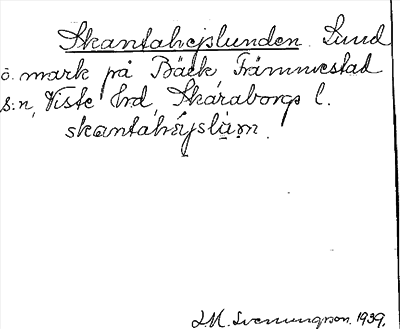 Skantahejslunden. Lund
o. mark på Bäck, Främmestad
s:n, Viste hrd, Skaraborgs l.
skantahǽjslùm.
J.M. Svenungson. 1939.